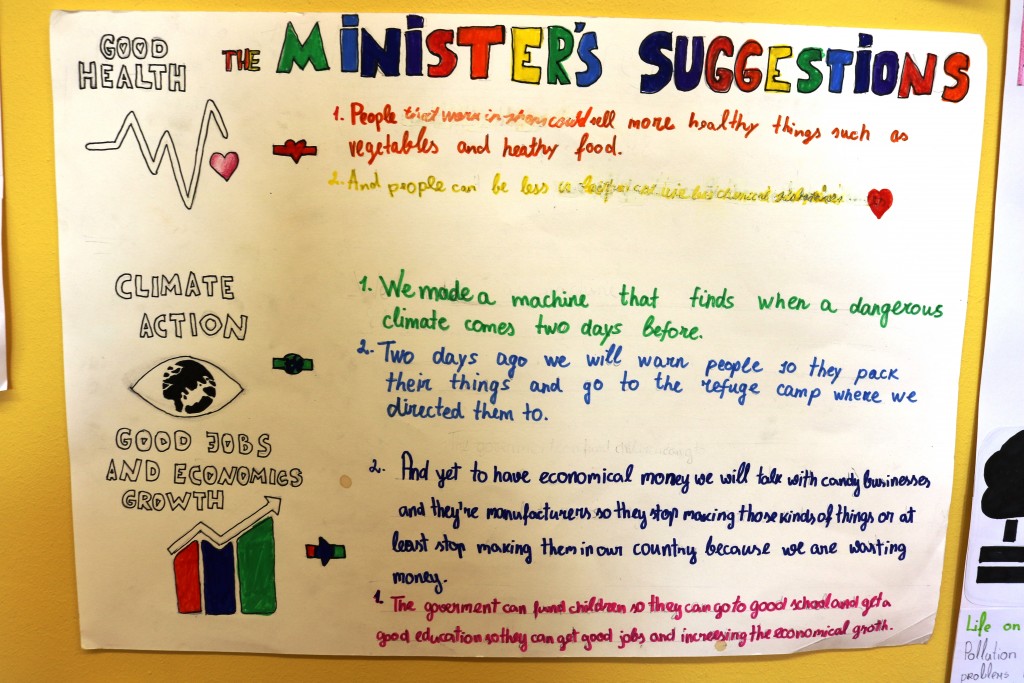 GOOD
HEALTH
THE MINISTER'S SUGGESTIONS
1. People that work in shops could sell more healthy things such as
vegetables and heathy food.
2. And people can be less
CLIMATE
ACTION
1. We made a machine that finds when a dangerous
climate comes two days before.
2. Two days ago we will warn people so they pack
their things and go to the refuge camp where we
directed them to.
GOOD JOBS
AND ECONOMICS
GROWTH
2. And yet to have economical money we will talk with candy businesses
and they're manufacturers so they stop making those kinds of things or at
least stop making them in our country because we are wasting
money.
1. The goverment can fund children so they can go to good school and get a
good education so they can get good jobs and increesing the economical groth.
Life on
Pollution
problems